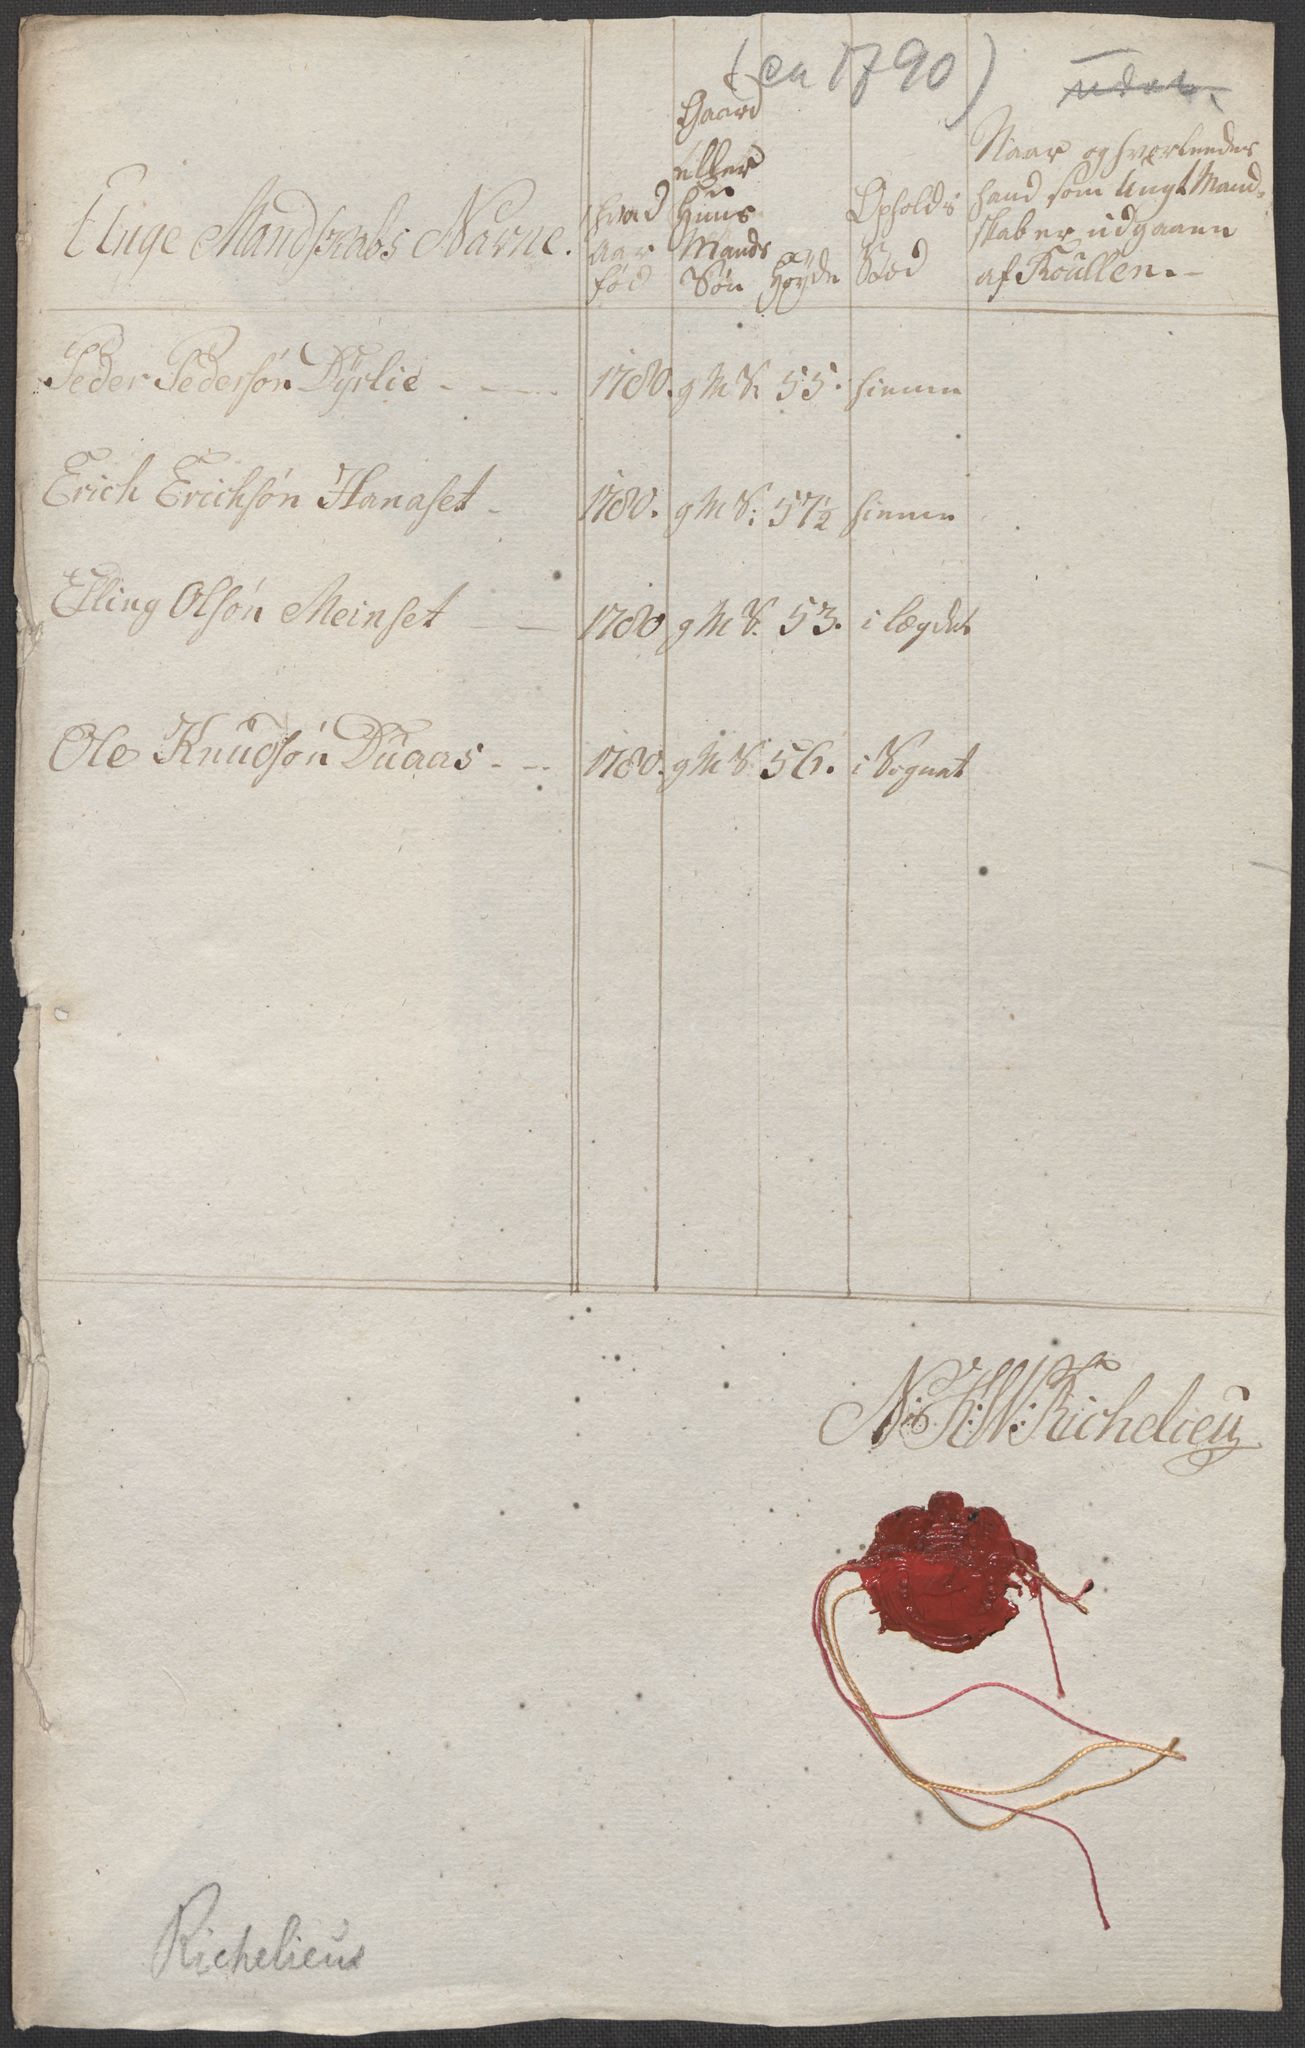 (ca 1790)
Unge Mandskabs Navne.
hvad
aar
fød
Gaard
eller
Huus
Mands
Søn
Høyde
Opholds
Stæd
Naar og hvorleedes
hand som Ungt Mand-
skab er udgaaen
af Roullen.-
Peder Pedersøn Dyrlie - - - 1780. g M S: 55. hiemme
Erich Erichsøn Hanaset - 1780. g M S: 57½ hiemme
Elling Olsøn Meinset - - 1780 g M S. 53. i lægdet
Ole Knudsøn Duaas - - - 1780. g M S 56. i Sognet
N: K: W: Richelieu
Richelieus